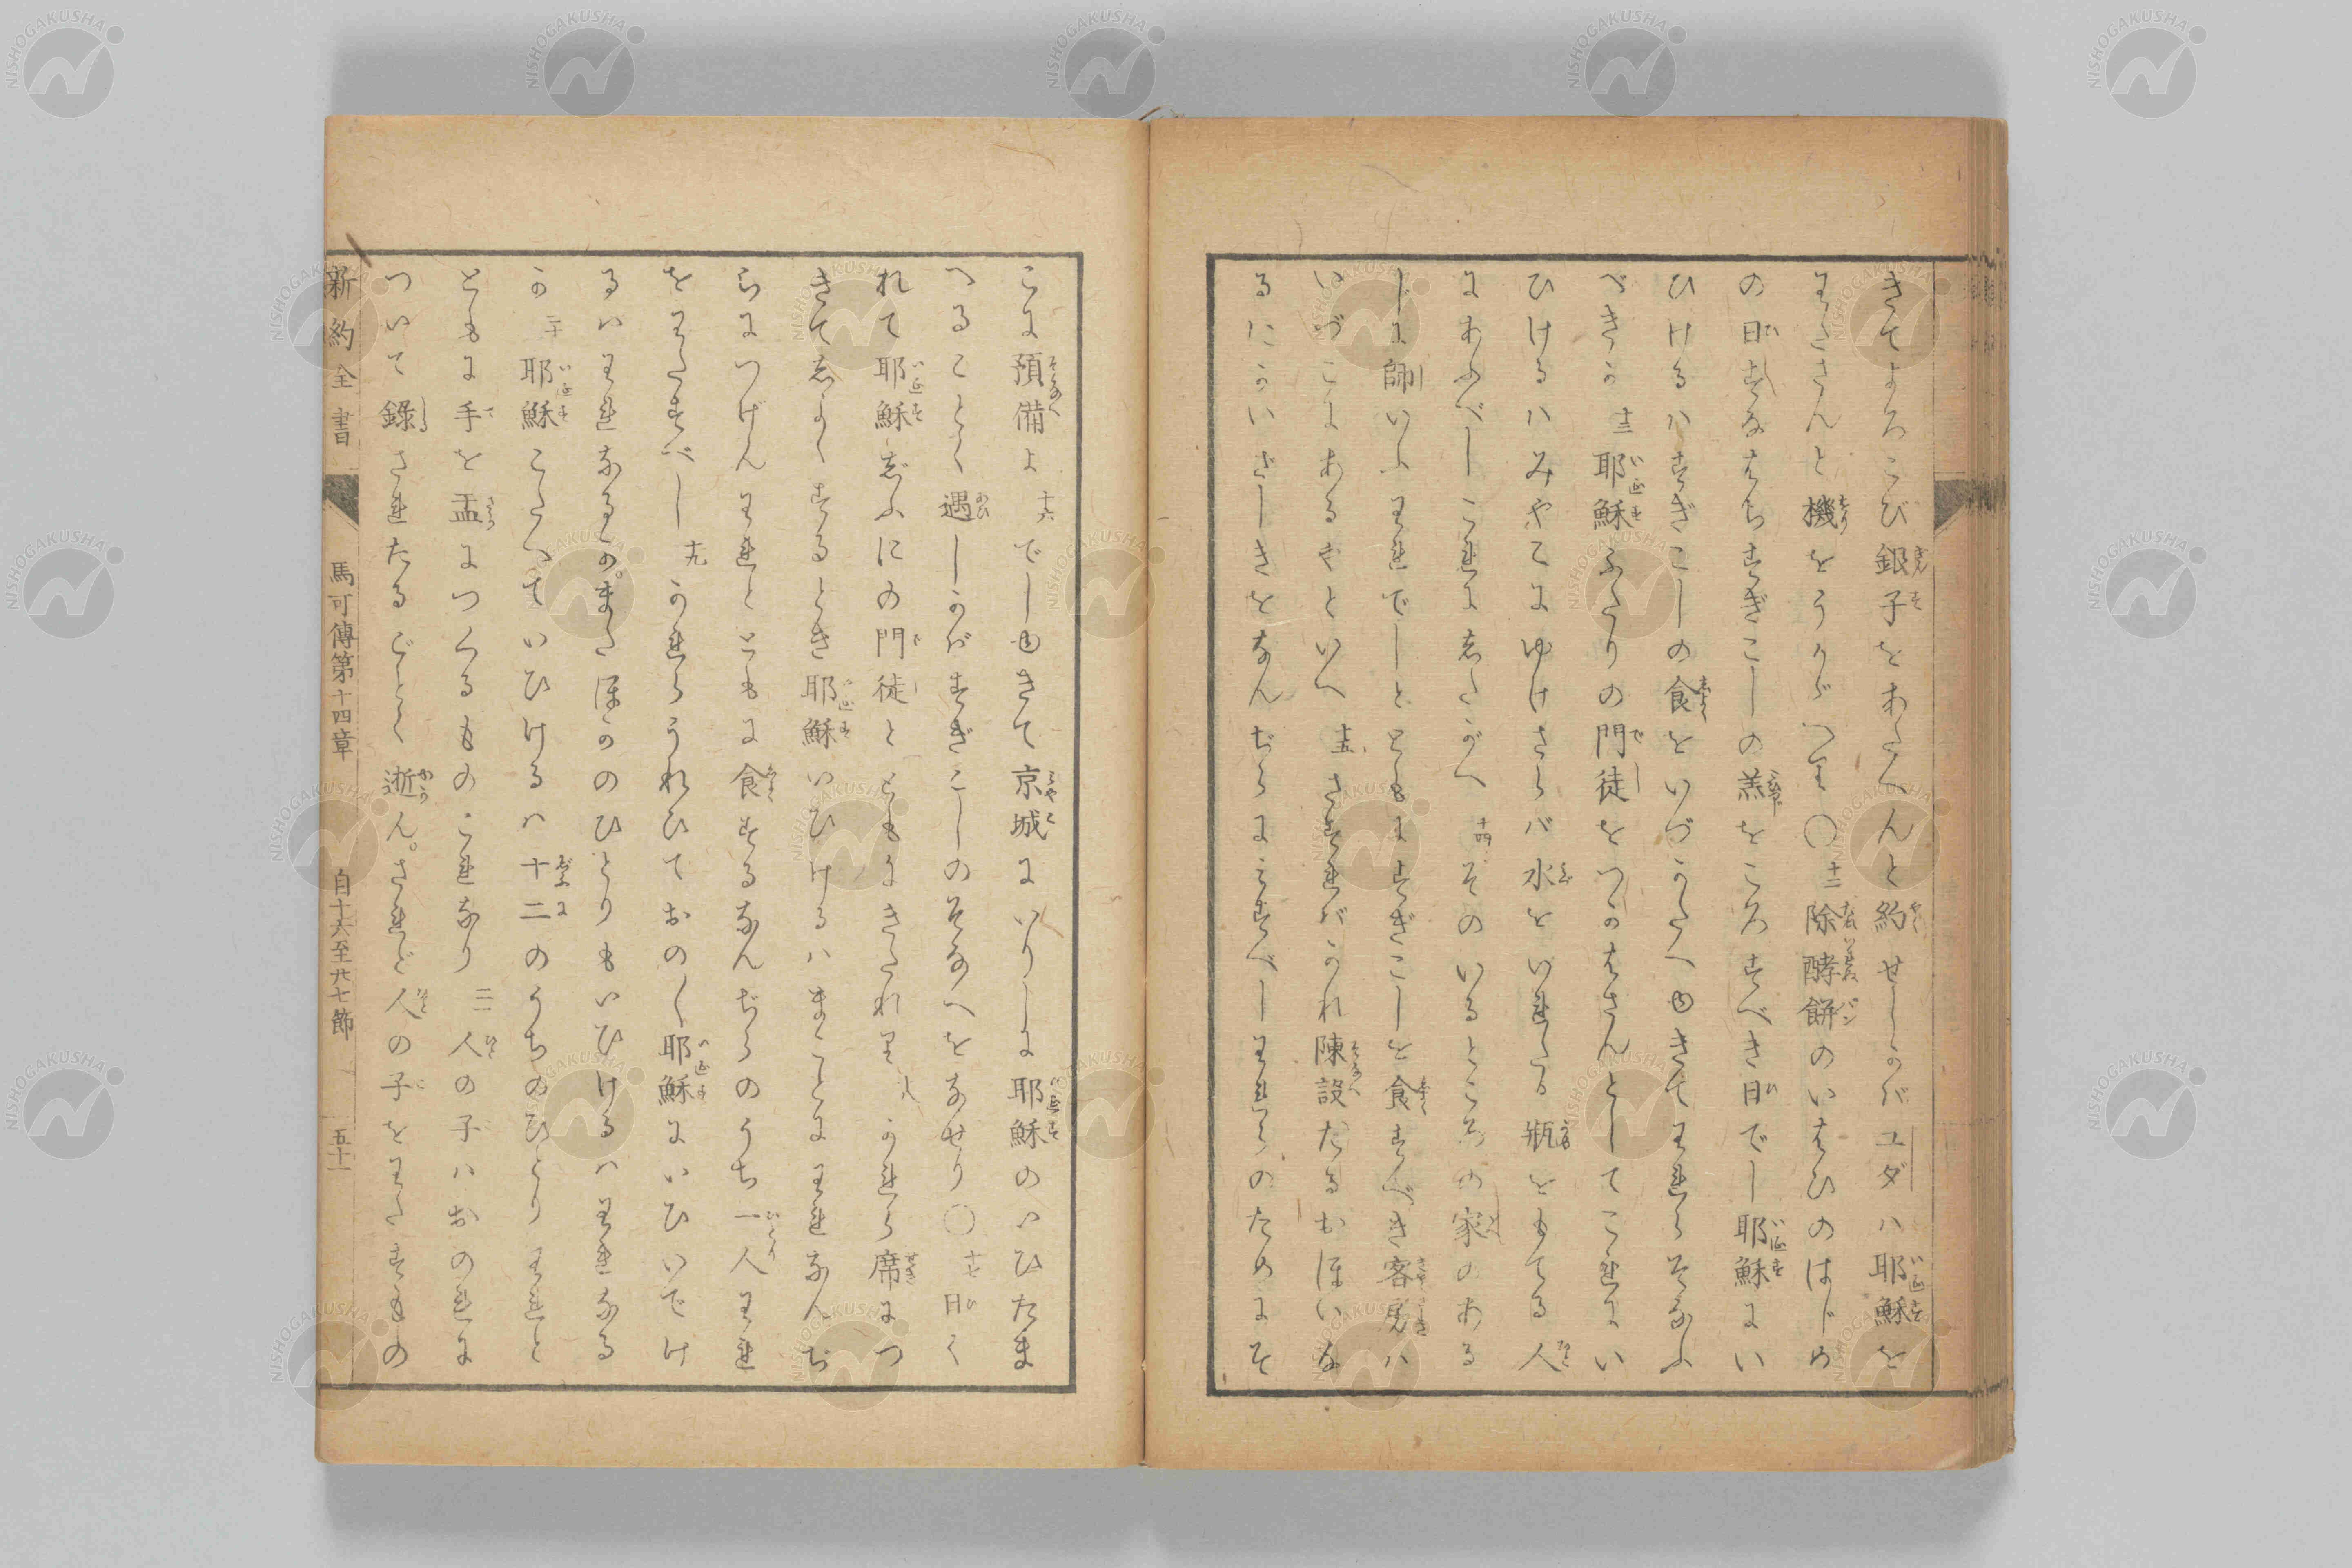 きてよろこび銀子をあたへんと約せしかバユダハ耶穌を
わたさんと機をうかゞへり〇十二除酵餅のいはひのはじめ
の日すなはちすぎこしの羔をころすべき日でし耶穌にい
ひけるハすぎこしの食をいづこへゆきてわれらそなふ
べきか十三耶穌ふたりの門徒をつかはさんとしてこれにい
ひけるハみやこにゆけさらバ水をいれたる瓶をもてる人
にあふべしこれにしたがへ十四そのいるところの家のある
じに師いふわれでしとともにすぎこしを食すべき客房ハ
いづこにあるやといへ十五さすればかれ陳設たるおほいな
るにかいざしきをなんぢらにみすべしわれらのためにそ
こに預備よ十六でしゆきて京城にいりしに耶穌のいひたま
へるごとく遇しかばすぎこしのそなへをなせり〇十七日く
れて耶穌じふにの門徒とともにきたれり十八かれら席につ
きてしよくするとき耶穌いひけるハまことにわれなんぢ
らにつげんわれとともに食するなんぢらのうち一人われ
をわたすべし十九かれらうれひておの〱耶穌にいひいでけ
るハわれなるか。またほかのひとりもいひけるハわれなる
か二十耶穌こたへていひけるハ十二のうちのひとりわれと
ともに手を盂につくるものこれなり二一人の子ハおのれに
ついて錄されたるごとく逝ん。されど人の子をわたすもの
新約全書 馬可傳第十四章 自十六至廿七節 五十一
NISHOGAKUSHA